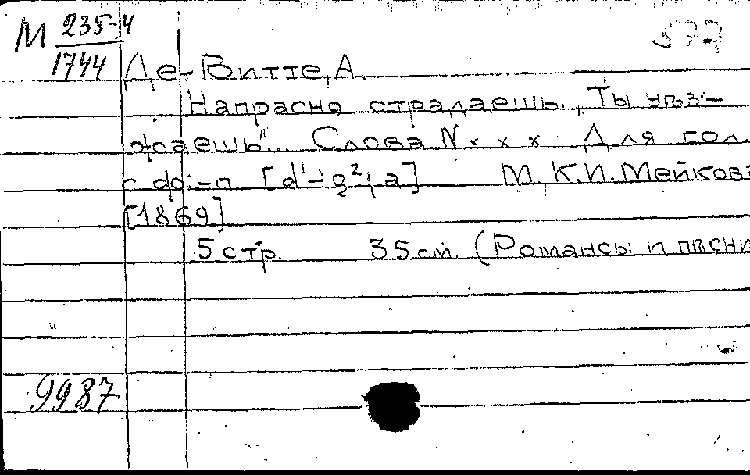 М 235-4
1744
577
Де-Витте, А.
Напрасно страдаешь. „Ты уѣз-
жаешь"... Слова N x x x Для гол.
с фп-п. [d¹-g²; a] М. К.И. Мейков
[1869]
5 стр. 35 см. (Романсы и пѣсни
9987